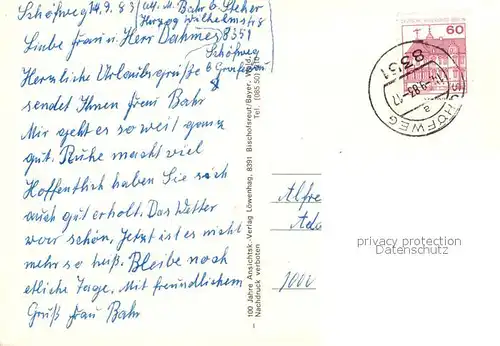 Schöfweg 14.9.83
b. Steher
Herzog Wilhelmstr 8
8351
Schöfweg
b Grafenau
Liebe Frau u. Herr Dahmes
Herzliche Urlaubsgrüße
sendet Ihnen Frau Bahr
Mir geht es so weit ganz
gut. Ruhe macht viel
Hoffentlich haben Sie sich
auch gut erholt. Das Wetter
war schön. Jetzt ist es nicht
mehr so heiß. Bleibe noch
etliche Tage. Mit freundlichem
Gruß Frau Bahr
100 Jahre Ansichtsk.-Verlag Löwenhag, 8391 Bischofsreut/Bayer. Wald,
Nachdruck verboten
60
8331
SCHÖFWEG
a
Alfre
privacy protection
Datenschutz